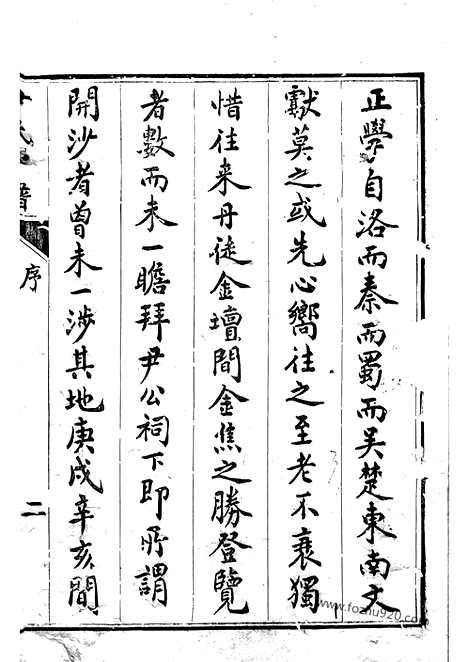 正學自洛而秦而蜀而吴楚東南文
獻莫之或先心嚮往之至老不衰獨
惜往来丹徒金壇間金焦之勝登覽
者數而未一瞻拜尹公祠下即所謂
開沙者曾未一涉其地庚戌辛亥間
氏 譜
序
二
www.fozhu920.com